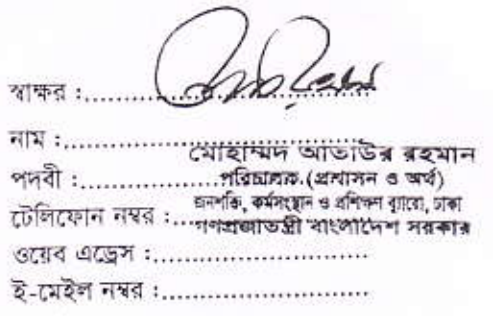 স্বাক্ষর :
নাম :
মোহাম্মদ আতাউর রহমান
পদবী :
পরিচালক (প্রশাসন ও অর্থ)
টেলিফোন নম্বর :
জনশক্তি, কর্মসংস্থান ও প্রশিক্ষণ ব্যুরো, ঢাকা
গণপ্রজাতন্ত্রী বাংলাদেশ সরকার
ওয়েব এড্রেস :
ই-মেইল নম্বর :